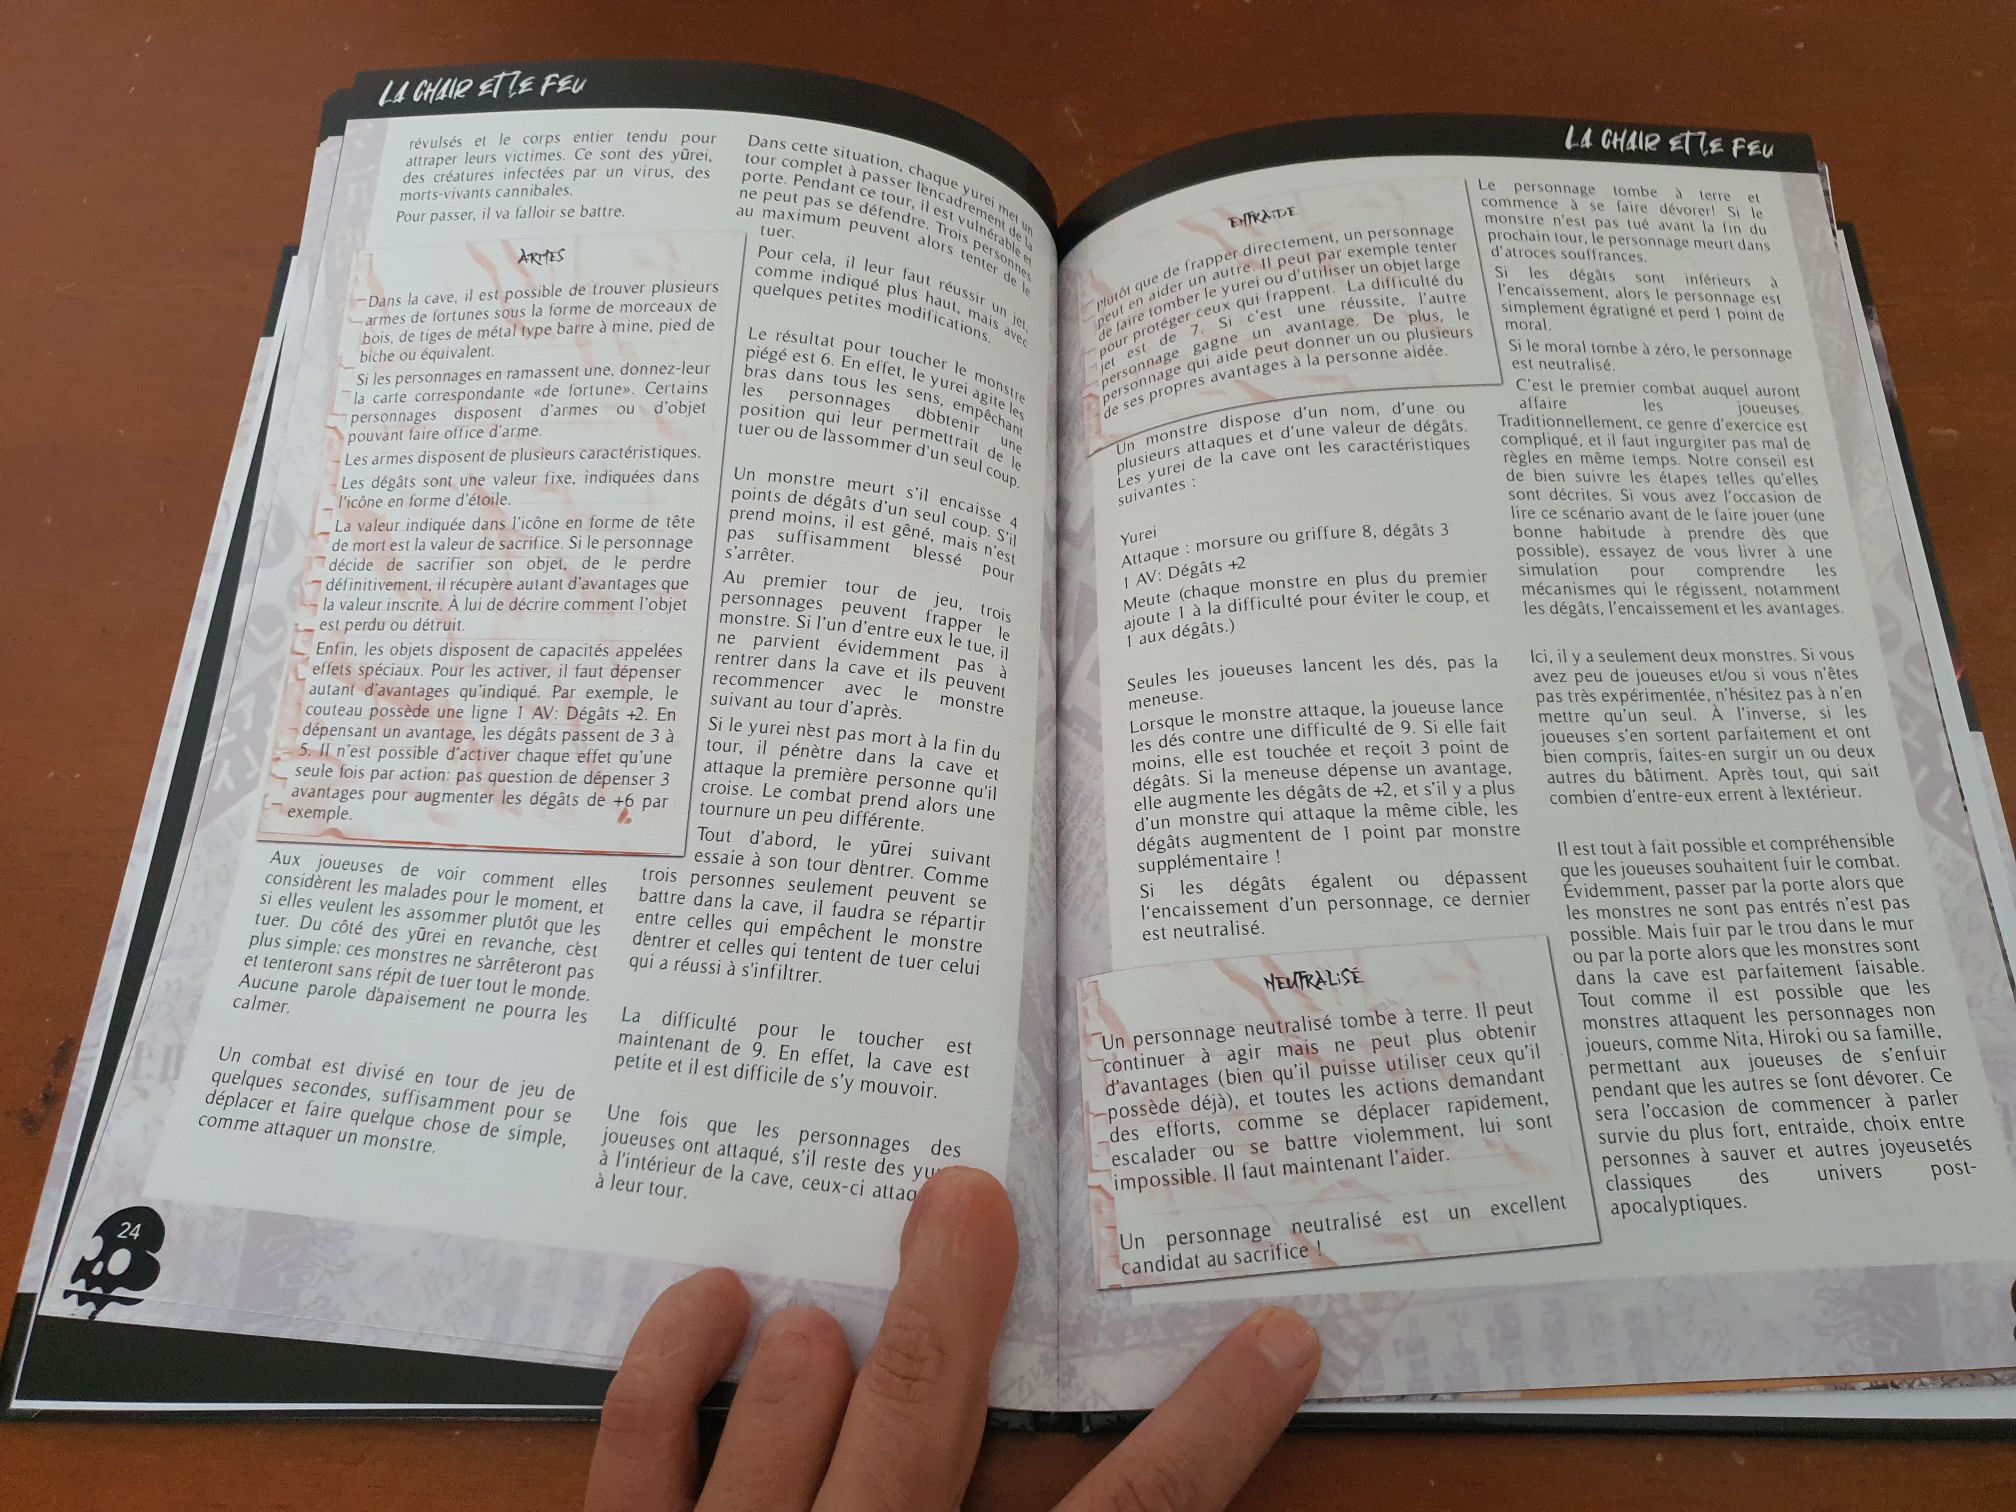 LA CHAIR ET LE FEU
révulsés et le corps entier tendu pour
attraper leurs victimes. Ce sont des yūrei,
des créatures infectées par un virus, des
morts-vivants cannibales.
Pour passer, il va falloir se battre.
ARMES
Dans la cave, il est possible de trouver plusieurs
armes de fortunes sous la forme de morceaux de
bois, de tiges de métal type barre à mine, pied de
biche ou équivalent.
Si les personnages en ramassent une, donnez-leur
la carte correspondante «de fortune». Certains
personnages disposent d'armes ou d'objet
pouvant faire office d'arme.
Les armes disposent de plusieurs caractéristiques.
Les dégâts sont une valeur fixe, indiquées dans
l'icône en forme d'étoile.
La valeur indiquée dans l'icône en forme de tête
de mort est la valeur de sacrifice. Si le personnage
décide de sacrifier son objet, de le perdre
définitivement, il récupère autant d'avantages que
la valeur inscrite. À lui de décrire comment l'objet
est perdu ou détruit.
Enfin, les objets disposent de capacités appelées
effets spéciaux. Pour les activer, il faut dépenser
autant d'avantages qu'indiqué. Par exemple, le
couteau possède une ligne 1 AV: Dégâts +2. En
dépensant un avantage, les dégâts passent de 3 à
5. Il n'est possible d'activer chaque effet qu'une
seule fois par action: pas question de dépenser 3
avantages pour augmenter les dégâts de +6 par
exemple.
Aux joueuses de voir comment elles
considèrent les malades pour le moment, et
si elles veulent les assommer plutôt que les
tuer. Du côté des yūrei en revanche, c'est
plus simple: ces monstres ne s'arrêteront pas
et tenteront sans répit de tuer tout le monde.
Aucune parole d'apaisement ne pourra les
calmer.
Un combat est divisé en tour de jeu de
quelques secondes, suffisamment pour se
déplacer et faire quelque chose de simple,
comme attaquer un monstre.
24
Dans cette situation, chaque yurei met un
tour complet à passer l'encadrement de la
porte. Pendant ce tour, il est vulnérable et
ne peut pas se défendre. Trois personnes
au maximum peuvent alors tenter de le
tuer.
Pour cela, il leur faut réussir un jet,
comme indiqué plus haut, mais avec
quelques petites modifications.
Le résultat pour toucher le monstre
piégé est 6. En effet, le yurei agite les
bras dans tous les sens, empêchant
les personnages d'obtenir une
position qui leur permettrait de le
tuer ou de l'assommer d'un seul coup.
Un monstre meurt s'il encaisse 4
points de dégâts d'un seul coup. S'il
prend moins, il est gêné, mais n'est
pas suffisamment blessé pour
s'arrêter.
Au premier tour de jeu, trois
personnages peuvent frapper le
monstre. Si l'un d'entre eux le tue, il
ne parvient évidemment pas à
rentrer dans la cave et ils peuvent
recommencer avec le monstre
suivant au tour d'après.
Si le yurei n'est pas mort à la fin du
tour, il pénètre dans la cave et
attaque la première personne qu'il
croise. Le combat prend alors une
tournure un peu différente.
Tout d'abord, le yūrei suivant
essaie à son tour d'entrer. Comme
trois personnes seulement peuvent se
battre dans la cave, il faudra se répartir
entre celles qui empêchent le monstre
d'entrer et celles qui tentent de tuer celui
qui a réussi à s'infiltrer.
La difficulté pour le toucher est
maintenant de 9. En effet, la cave est
petite et il est difficile de s'y mouvoir.
Une fois que les personnages des
joueuses ont attaqué, s'il reste des
à l'intérieur de la cave, ceux-ci
à leur tour.
LA CHAIR ET LE FEU
ENTRAIDE
Plutôt que de frapper directement, un personnage
peut en aider un autre. Il peut par exemple tenter
de faire tomber le yurei ou d'utiliser un objet large
pour protéger ceux qui frappent. La difficulté du
jet est de 7. Si c'est une réussite, l'autre
personnage gagne un avantage. De plus, le
personnage qui aide peut donner un ou plusieurs
de ses propres avantages à la personne aidée.
Un monstre dispose d'un nom, d'une ou
plusieurs attaques et d'une valeur de dégâts.
Les yurei de la cave ont les caractéristiques
suivantes :
Yurei
Attaque : morsure ou griffure 8, dégâts 3
1 AV: Dégâts +2
Meute (chaque monstre en plus du premier
ajoute 1 à la difficulté pour éviter le coup, et
1 aux dégâts.)
Seules les joueuses lancent les dés, pas la
meneuse.
Lorsque le monstre attaque, la joueuse lance
les dés contre une difficulté de 9. Si elle fait
moins, elle est touchée et reçoit 3 point de
dégâts. Si la meneuse dépense un avantage,
elle augmente les dégâts de +2, et s'il y a plus
d'un monstre qui attaque la même cible, les
dégâts augmentent de 1 point par monstre
supplémentaire !
Si les dégâts égalent ou dépassent
l'encaissement d'un personnage, ce dernier
est neutralisé.
NEUTRALISÉ
Un personnage neutralisé tombe à terre. Il peut
continuer à agir mais ne peut plus obtenir
d'avantages (bien qu'il puisse utiliser ceux qu'il
possède déjà), et toutes les actions demandant
des efforts, comme se déplacer rapidement,
escalader ou se battre violemment, lui sont
impossible. Il faut maintenant l'aider.
Un personnage neutralisé est un excellent
candidat au sacrifice !
Le personnage tombe à terre et
commence à se faire dévorer! Si le
monstre n'est pas tué avant la fin du
prochain tour, le personnage meurt dans
d'atroces souffrances.
Si les dégâts sont inférieurs à
l'encaissement, alors le personnage est
simplement égratigné et perd 1 point de
moral.
Si le moral tombe à zéro, le personnage
est neutralisé.
C'est le premier combat auquel auront
affaire les joueuses.
Traditionnellement, ce genre d'exercice est
compliqué, et il faut ingurgiter pas mal de
règles en même temps. Notre conseil est
de bien suivre les étapes telles qu'elles
sont décrites. Si vous avez l'occasion de
lire ce scénario avant de le faire jouer (une
bonne habitude à prendre dès que
possible), essayez de vous livrer à une
simulation pour comprendre les
mécanismes qui le régissent, notamment
les dégâts, l'encaissement et les avantages.
Ici, il y a seulement deux monstres. Si vous
avez peu de joueuses et/ou si vous n'êtes
pas très expérimentée, n'hésitez pas à n'en
mettre qu'un seul. À l'inverse, si les
joueuses s'en sortent parfaitement et ont
bien compris, faites-en surgir un ou deux
autres du bâtiment. Après tout, qui sait
combien d'entre-eux errent à l'extérieur.
Il est tout à fait possible et compréhensible
que les joueuses souhaitent fuir le combat.
Évidemment, passer par la porte alors que
les monstres ne sont pas entrés n'est pas
possible. Mais fuir par le trou dans le mur
ou par la porte alors que les monstres sont
dans la cave est parfaitement faisable.
Tout comme il est possible que les
monstres attaquent les personnages non
joueurs, comme Nita, Hiroki ou sa famille,
permettant aux joueuses de s'enfuir
pendant que les autres se font dévorer. Ce
sera l'occasion de commencer à parler
survie du plus fort, entraide, choix entre
personnes à sauver et autres joyeusetés
classiques des univers post-
apocalyptiques.